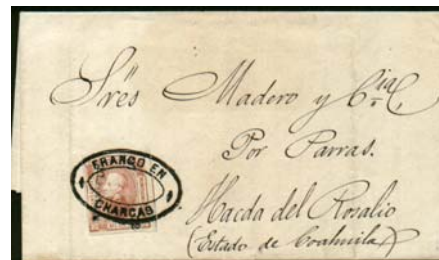 Sres Madero y Cia
Por Parras.
FRANCO EN
CHARCAS
Hacda del Rosalio
(Estado de Coahuila)